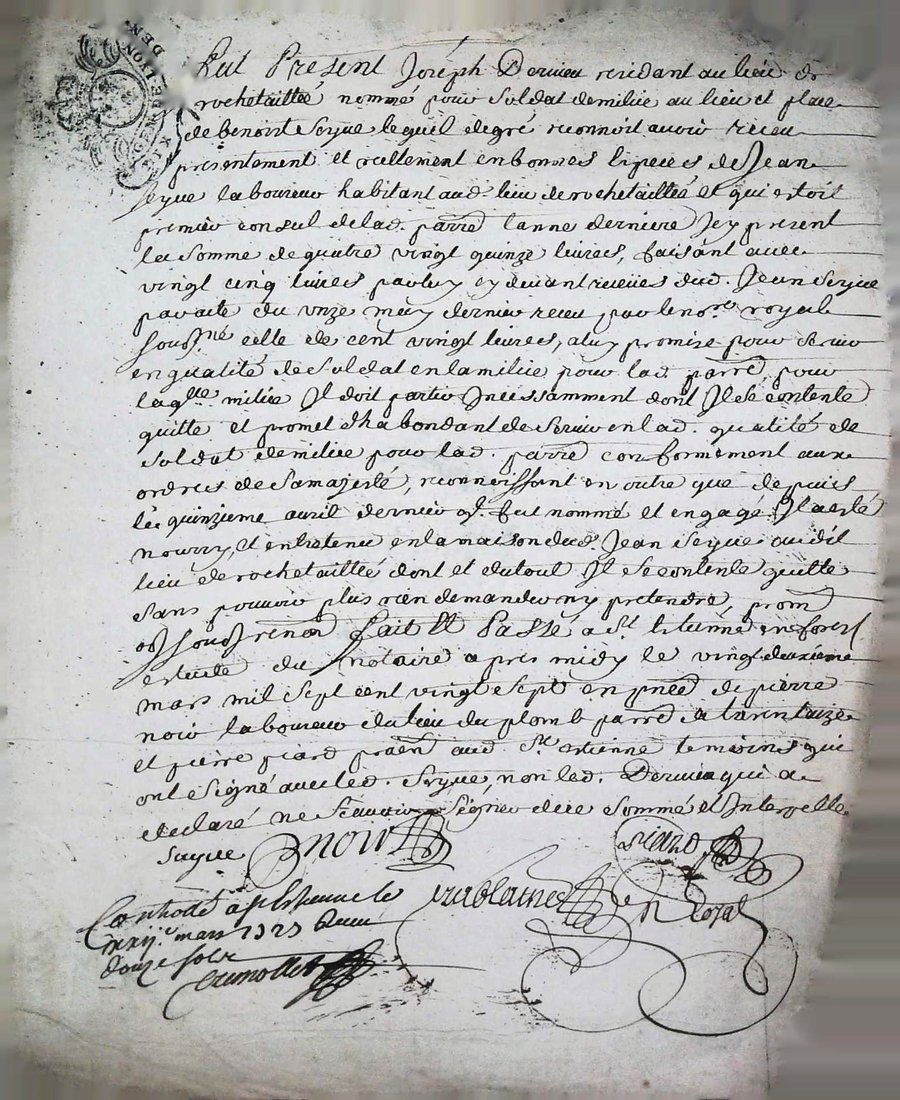 GEN DE LYON
DEN
Fut Present Joseph Dervieu residant au lieu de
rochetaillée nommé pour soldat de milice au lieu et place
de benoist Seyue lequel de gré reconnoit avoir receu
presentement et reellement en bonnes Especes de Jean
Seyue laboureur habitant aud. lieu de rochetaillée et qui estoit
premier consul de lad. parre lanne derniere Icy present
la somme de quatre vingt quinze livres, faisant avec
vingt cinq livres par luy cy devant receües dud. Jean Seyue
par acte du unze may dernier receu par le nore royal
sousne celle de cent vingt livres, a luy promise pour servir
en qualité de soldat en la milice pour lad. parre, pour
laqlle milice Il doit partir Incessamment dont Il se contente
quitte et promet d'habondant de servir en lad. qualité de
soldat de milice pour lad. parre conformement aux
ordres de Sa majesté, reconnoissant en outre que depuis
le quinzieme avril dernier ql. fut nommé et engagé Il a esté
nourry, et entretenu en la maison dud. Jean Seyue audit
lieu de rochetaillée dont et du tout Il se contente quitte
sans pouvoir plus rien demander ny pretendre, prom
obl sousb renon fait Et Passé a St Estienne en forest
estude du notaire apres midy le vingt deuxieme
mars mil sept cent vingt sept en pnce de pierre
noir laboureur du lieu du plomb parre de tarentaize
et pierre piard praen aud. St. estienne temoins qui
ont signé avec led. Seyue, non led. Dervieu qui a
declaré ne scavoir signer de ce sommé et Interpellé
Sayue noir piard
Nre Royal
Controllé à St Estienne le
xxij. mars 1727 Receu
douze sols